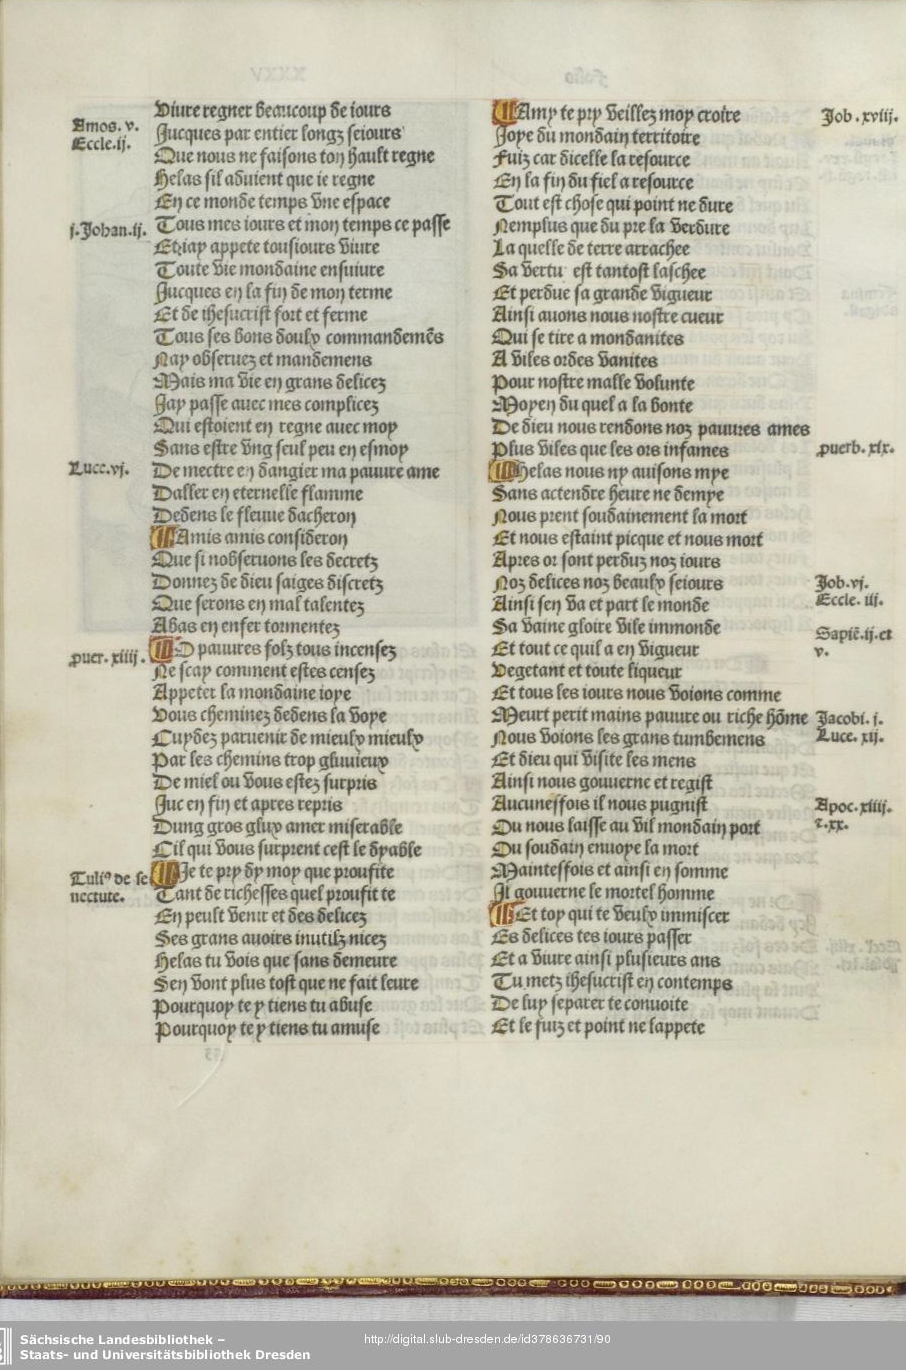 Viure regner beaucoup de iours
Jucques par entier longz seiours
Que nous ne faisons ton hault regne
Helas sil aduient que ie regne
En ce monde temps vne espace
Tous mes iours et mon temps ce passe
Et iay appete tousiours viure
Toute vie mondaine ensuiure
Jucques en la fin de mon terme
Et de ihesucrist fort et ferme
Tous ses bons doulx commandemēs
Nay obseruez et mandemens
Mais ma vie en grans delicez
Jay passe auec mes complicez
Qui estoient en regne auec moy
Sans estre vng seul peu en esmoy
De mectre en dangier ma pauure ame
Daller en eternelle flamme
Dedens le fleuue dacheron
Amis amis consideron
Que si nobseruons les decretz
Donnez de dieu saiges discretz
Que serons en mal talentez
Abas en enfer tormentez
O pauures folz tous incensez
Ne scay comment estes censez
Appeter la mondaine ioye
Vous cheminez dedens la voye
Cuydez paruenir de mieulx mieulx
Par les chemins trop gluuieux
De miel ou vous estez surpris
Juc en fin et apres repris
Dung gros glux amer miserable
Cil qui vous surprent cest le dyable
Je te pry dy moy que proufite
Tant de richesses quel proufit te
En peult venir et des delicez
Ses grans auoirs inutilz nicez
Helas tu vois que sans demeure
Sen vont plus tost que ne fait leure
Pourquoy te y tiens tu abuse
Pourquoy te y tiens tu amuse
Amos. v.
Eccle.ij.
j.Johan.ij.
Luce.vj.
ꝓuer. xiiij.
Tuliꝰ de se
nectute.
Amy te pry veillez moy croire
Joye du mondain territoire
Fuiz car dicelle la resource
En la fin du fiel a resource
Tout est chose qui point ne dure
Nemplus que du pre la verdure
La quelle de terre arrachee
Sa vertu est tantost laschee
Et perdue sa grande vigueur
Ainsi auons nous nostre cueur
Qui se tire a mondanites
A viles ordes vanites
Pour nostre malle volunte
Moyen du quel a la bonte
De dieu nous rendons noz pauures ames
Plus viles que les ors infames
Helas nous ny auisons mye
Sans actendre heure ne demye
Nous prent soudainement la mort
Et nous estaint picque et nous mort
Apres or sont perduz noz iours
Noz delices noz beaulx seiours
Ainsi sen va et part le monde
Sa vaine gloire vile immonde
Et tout ce quil a en vigueur
Vegetant et toute liqueur
Et tous les iours nous voions comme
Meurt perit mains pauure ou riche hōme
Nous voions les grans tumbemens
Et dieu qui visite les mens
Ainsi nous gouuerne et regist
Aucuneffois il nous pugnist
Ou nous laisse au vil mondain port
Ou soudain enuoye la mort
Mainteffois et ainsi en somme
Il gouuerne le mortel homme
Et toy qui te veulx immiscer
Es delices tes iours passer
Et a viure ainsi plusieurs ans
Tu metz ihesucrist en contemps
De luy separer te conuoite
Et le fuiz et point ne lappete
Job. xviij.
ꝓuerb. xix.
Job.vj.
Eccle. iij.
Sapiē.ij.et
v.
Jacobi. j.
Luce. xij.
Apoc.xiiij.
⁊.xx.
Sächsische Landesbibliothek –
Staats- und Universitätsbibliothek Dresden
http://digital.slub-dresden.de/id378636731/90